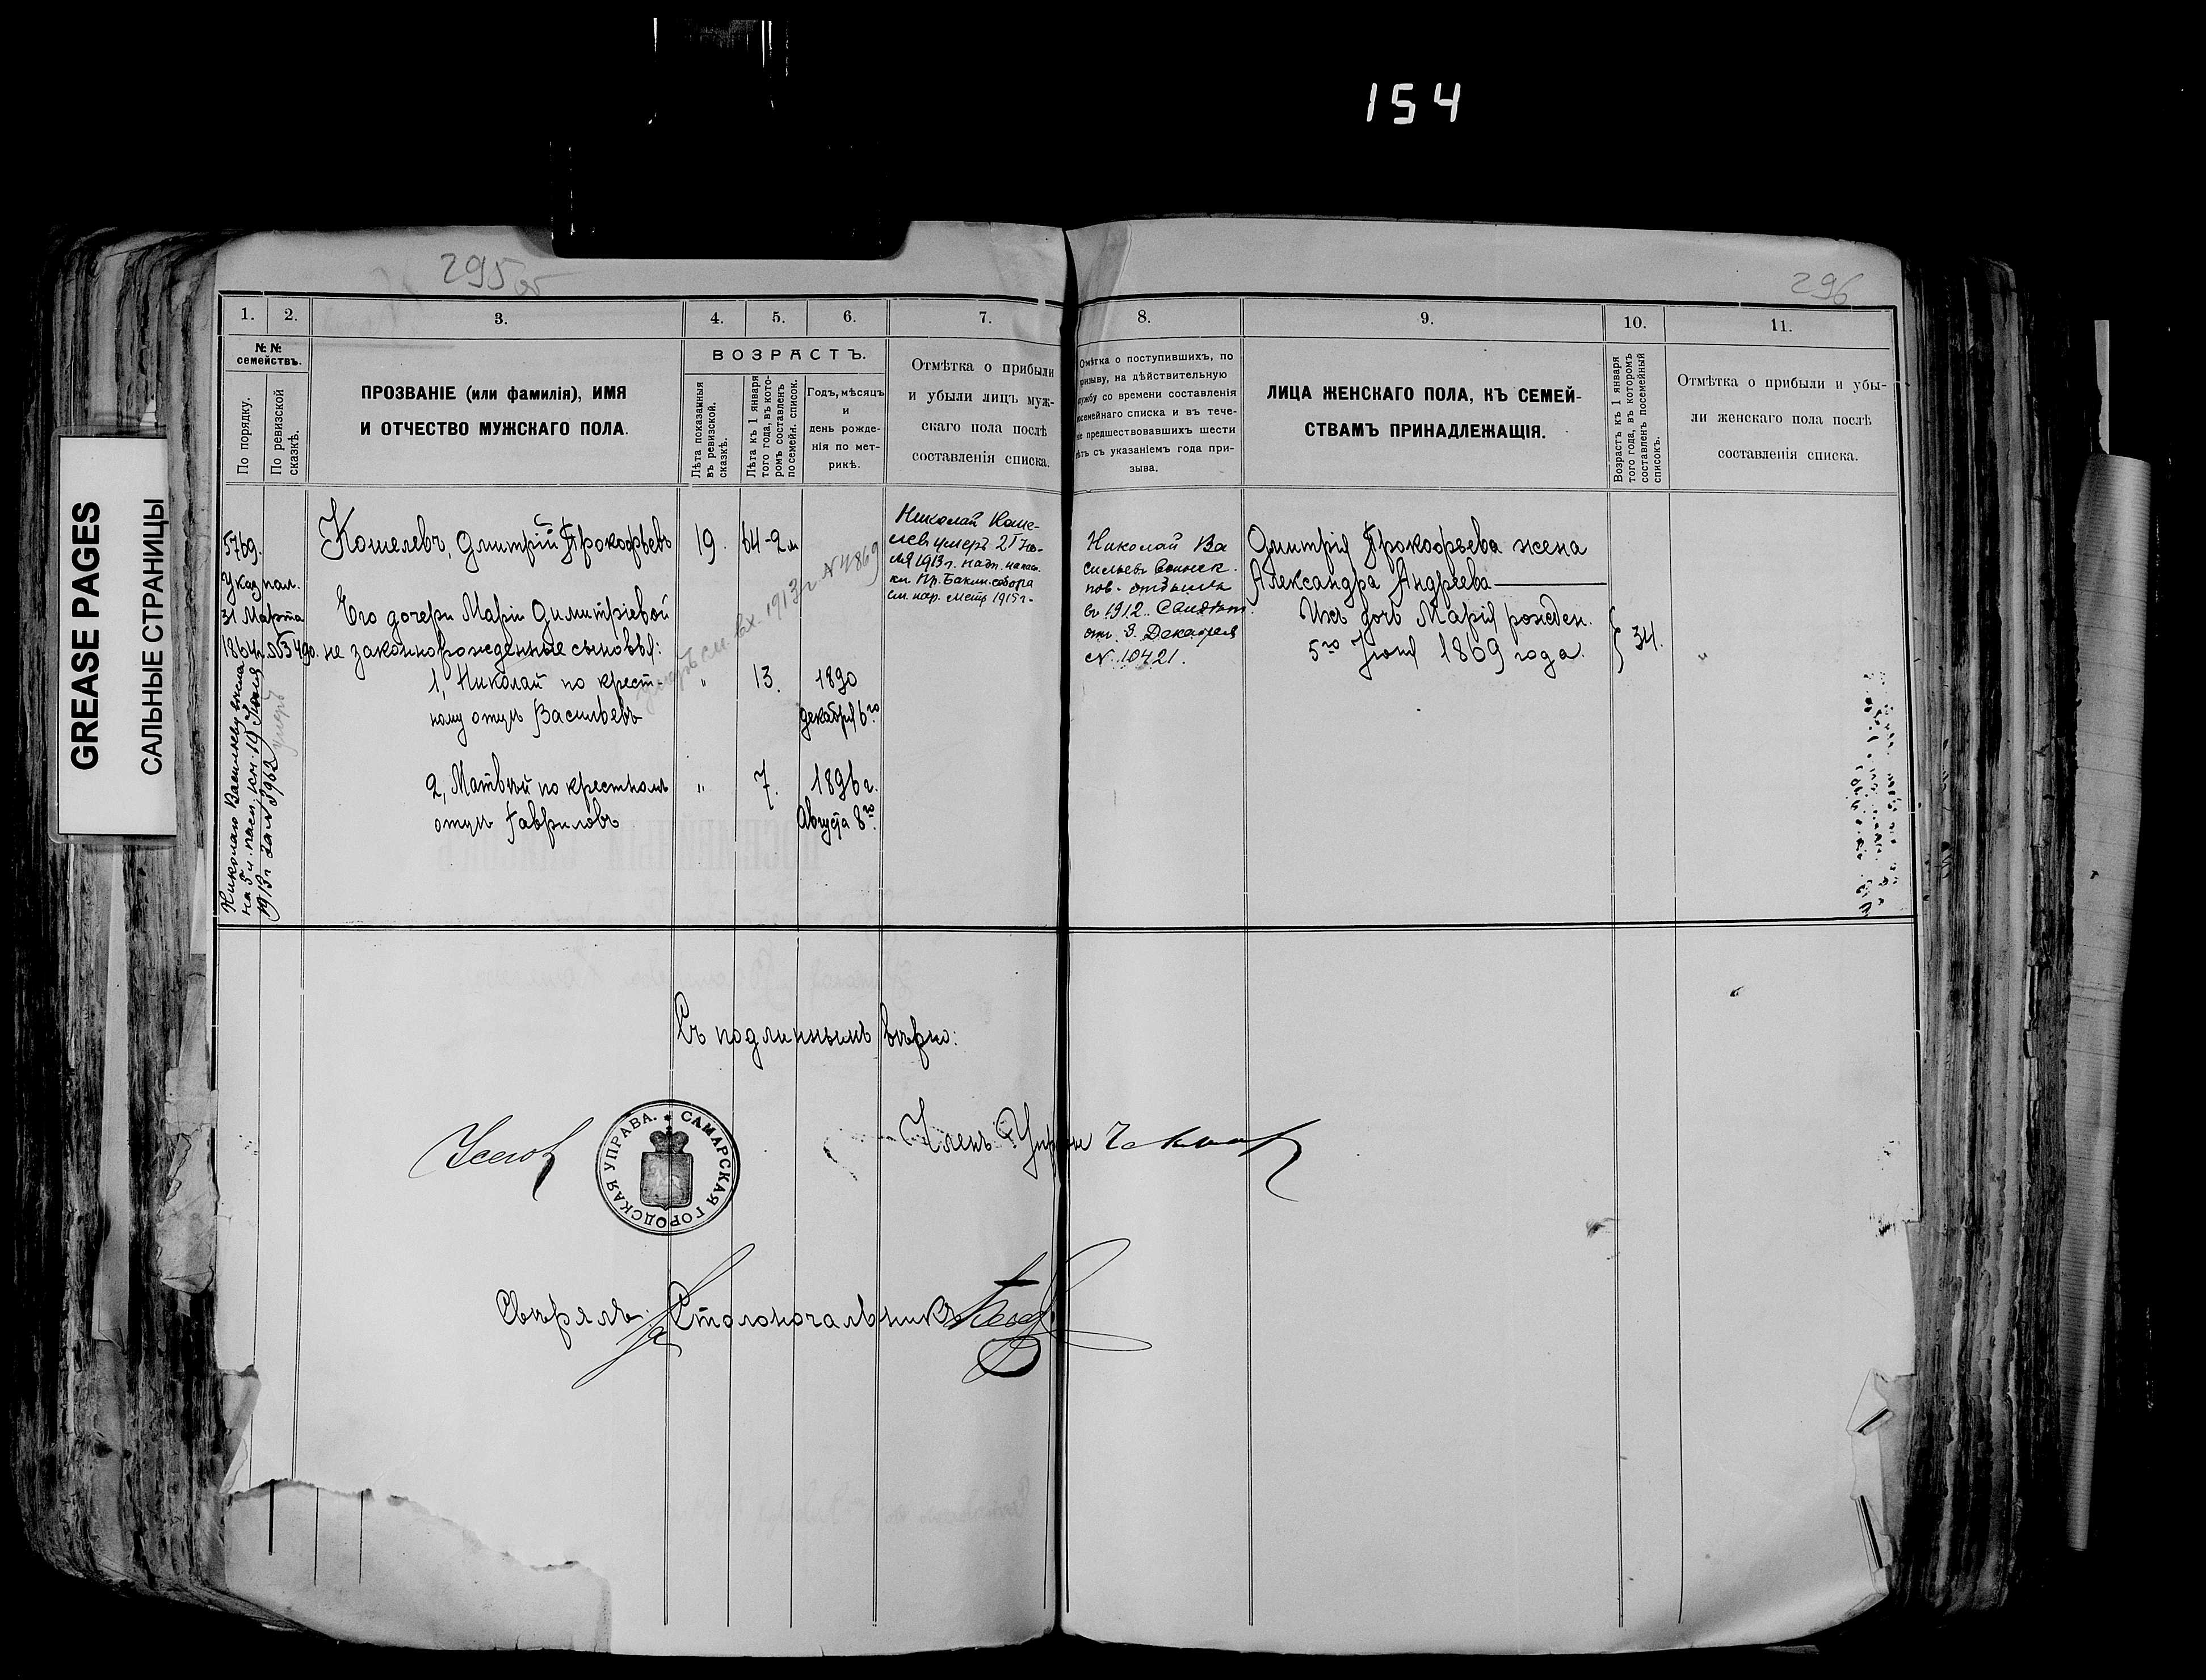 154
GREASE PAGES
САЛЬНЫЕ СТРАНИЦЫ
295 об
296
1.
2.
3.
4.
5.
6.
7.
8.
9.
10.
11.
№ №
семействъ.
По порядку.
По ревизской
сказкѣ.
ПРОЗВАНІЕ (или фамилія), ИМЯ
И ОТЧЕСТВО МУЖСКАГО ПОЛА.
ВОЗРАСТЪ.
Лѣта показанныя
въ ревизской.
сказкѣ.
Лѣта къ 1 января
того года, въ кото-
ромъ составленъ
посемейн. список.
Годъ, мѣсяцъ
и
день рожде-
нія по мет-
рикѣ.
Отмѣтка о прибыли
и убыли лицъ муж-
скаго пола послѣ
составленія списка.
Отмѣтка о поступившихъ, по
призыву, на дѣйствительную
службу со времени составленія
посемейнаго списка и въ тече-
ніе предшествовавшихъ шести
лѣтъ съ указаніемъ года при-
зыва.
ЛИЦА ЖЕНСКАГО ПОЛА, КЪ СЕМЕЙ-
СТВАМЪ ПРИНАДЛЕЖАЩІЯ.
Возрастъ къ 1 января
того года, въ которомъ
составленъ посемейный
списокъ.
Отмѣтка о прибыли и убы-
ли женскаго пола послѣ
составленія списка.
5769.
Указ. пал.
31 Марта
1864 г. № 5490.
Николаю Васильеву
на 5 л. 19 Іюля
1913 г. за № 3962
умеръ
Кошелевъ, Дмитрій Прокофьевъ
19.
64-2 м
Его дочери Маріи Димитріевой
не законнорожденные сыновья:
1, Николай по крест-
ному отцу Васильевъ
"
13.
1890
декабря 6го
2, Матвѣй по крестном
отцу Гавриловъ
"
7.
1896 г.
Августа 8го.
умеръ см. вх. 1913 г. № 4869
Николай Коше-
левъ умеръ 21 Ію-
ля 1913 г.
собора
1915 г.
Николай Ва
сильевъ воинск.
пов. отбылъ
въ 1912.
от. 3. Декабря
№. 10421.
Дмитрія Прокофьева жена
Александра Андреева
Ихъ дочь Марія рожден.
5го Іюня 1869 года.
34.
Съ подлиннымъ вѣрно:
Членъ Управы
САМАРСКАЯ ГОРОДСКАЯ УПРАВА.
Свѣрялъ: За Столоначальника